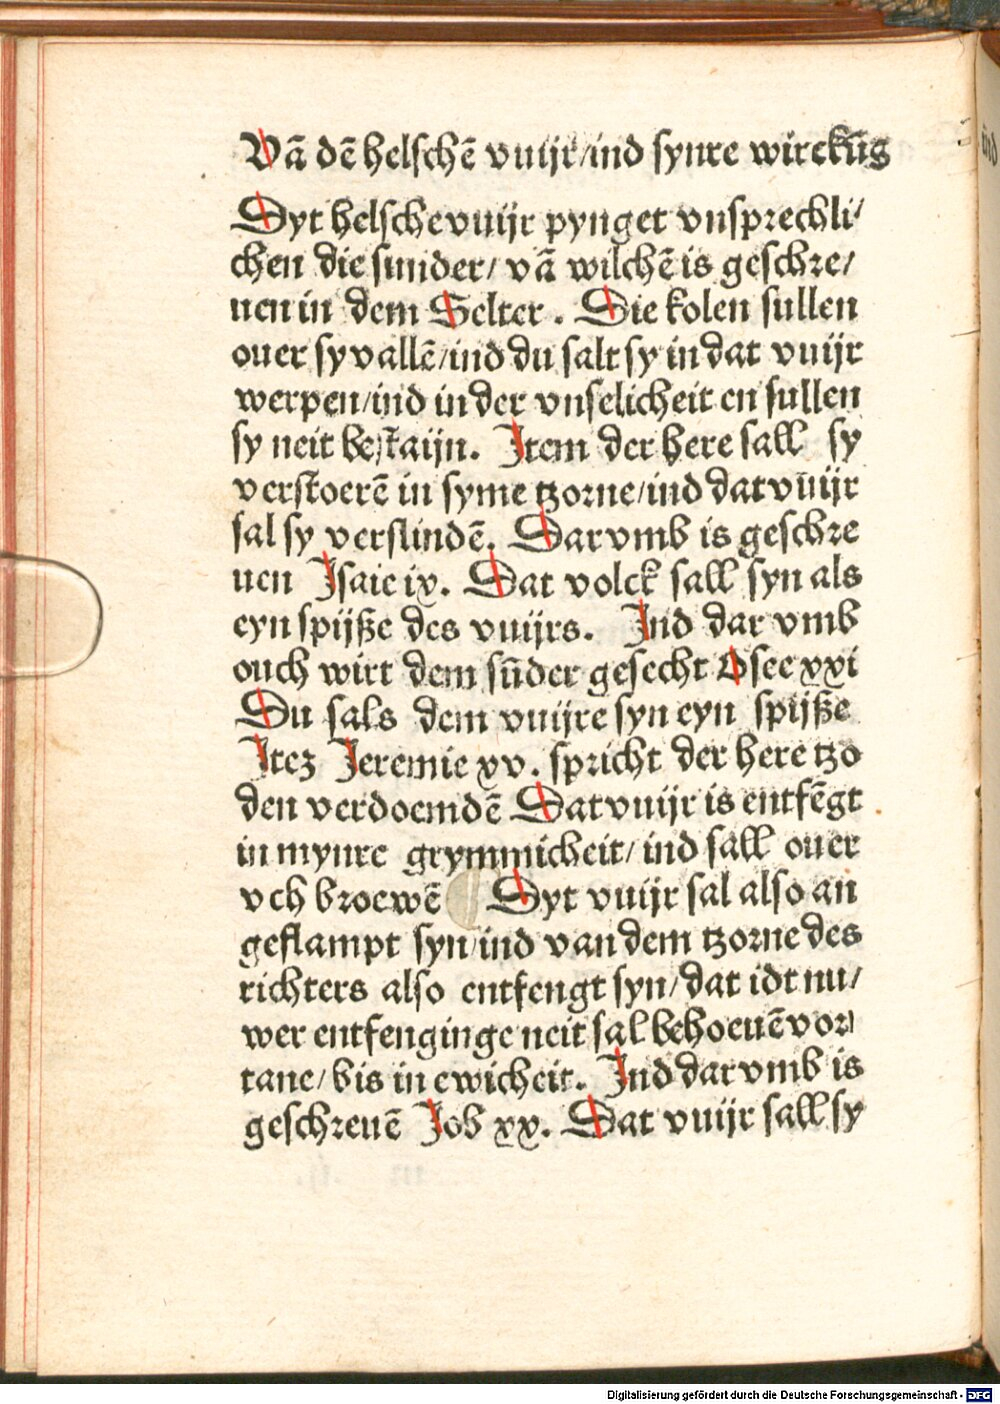 Vā dē helschē vuijr/ind synre wirckūg
Dyt helsche vuijr pynget vnsprechli/
chen die sunder/ vā wilchē is geschre/
uen in dem Selter. Die kolen sullen
ouer sy vallē/ind du salt sy in dat vuijr
werpen/ind in der vnselicheit en sullen
sy neit bestaijn. Item der here sall sy
verstoerē in syme tzorne/ind dat vuijr
sal sy verslindē. Dar vmb is geschre
uen Isaie ix. Dat volck sall syn als
eyn spijße des vuijrs. Ind dar vmb
ouch wirt dem sūder gesecht Osee xxi
Du sals dem vuijre syn eyn spijße
Itez Jeremie xv. spricht der here tzo
den verdoemdē Dat vuijr is entfēgt
in mynre grymmicheit/ ind sall ouer
vch broewē Dyt vuijr sal also an
geflampt syn/ind van dem tzorne des
richters also entfengt syn/dat idt nu/
wer entfenginge neit sal behoeuē vor
tane/bis in ewicheit. Ind dar vmb is
geschreuē Job xx. Dat vuijr sall sy
Digitalisierung gefördert durch die Deutsche Forschungsgemeinschaft - DFG